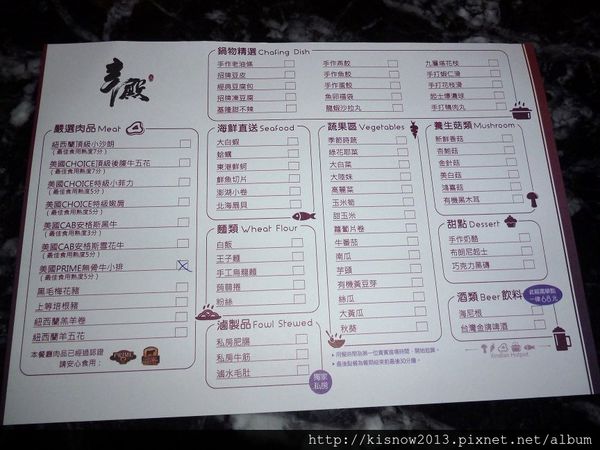 辛殿
鍋物精選 Chafing Dish
手作老油條
招牌豆皮
經典豆腐包
招牌凍豆腐
基隆甜不辣
手作燕餃
手作魚餃
手作蛋餃
魚卵福袋
龍蝦沙拉丸
九層塔花枝
手打蝦仁滑
手打花枝滑
起士爆漿球
手打鴨肉丸
嚴選肉品 Meat
紐西蘭頂級小沙朗
(最佳食用熟度7分)
美國CHOICE頂級後腹牛五花
(最佳食用熟度7分)
美國CHOICE特級小菲力
(最佳食用熟度5分)
美國CHOICE特級嫩肩
(最佳食用熟度5分)
美國CAB安格斯黑牛
(最佳食用熟度3分)
美國CAB安格斯雪花牛
(最佳食用熟度5分)
美國PRIME無骨牛小排
(最佳食用熟度5分)
黑毛梅花豬
上等培根豬
紐西蘭羔羊卷
紐西蘭羊五花
本餐廳肉品已經過認證
請安心食用：
海鮮直送 Seafood
大白蝦
蛤蠣
東港鮮蚵
鮮魚切片
澎湖小卷
北海扇貝
麵類 Wheat Flour
白飯
王子麵
手工烏龍麵
蒟蒻捲
粉絲
滷製品 Fowl Stewed
私房肥腸
私房牛筋
滷水毛肚
獨家
私房
蔬果區 Vegetables
季節時蔬
綠花耶菜
大白菜
大陸妹
高麗菜
玉米筍
甜玉米
蘿蔔片卷
牛番茄
南瓜
芋頭
有機黃豆芽
絲瓜
大黃瓜
秋葵
養生菇類 Mushroom
新鮮香菇
杏鮑菇
金針菇
美白菇
鴻喜菇
有機黑木耳
甜點 Dessert
手作奶酪
布朗尼起士
巧克力黑磚
酒類 Beer 飲料
一律68元
海尼根
台灣金牌啤酒
Xindian Hotpot
http://kisnow2013.pixnet.net/album